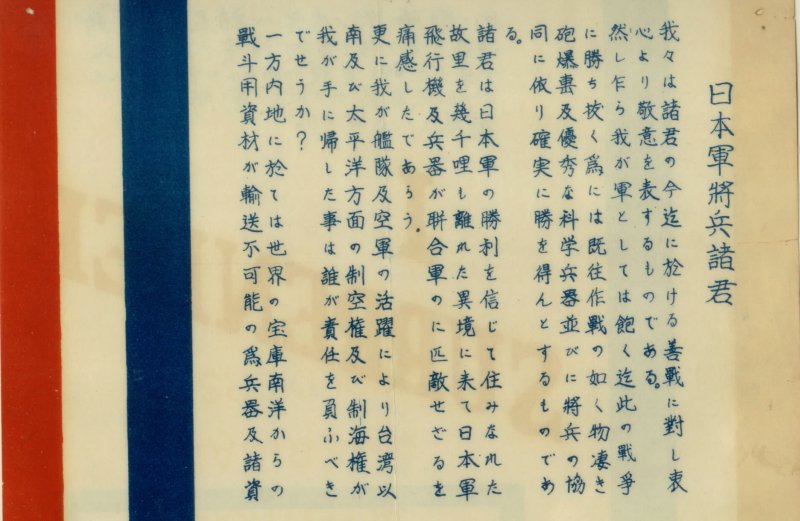 日本軍將兵諸君
我々は諸君の今迄に於ける善戰に對し衷
心より敬意を表するものである。
然し乍ら我が軍としては飽く迄此の戰爭
に勝ち抜く爲には既往作戰の如く物凄き
砲爆裏及優秀な科学兵器並びに將兵の協
同に依り確実に勝を得んとするものであ
る。
諸君は日本軍の勝利を信じて住みなれた
故里を幾千哩も離れた異境に来て日本軍
飛行機及兵器が聯合軍のに匹敵せざるを
痛感したであらう。
更に我が艦隊及空軍の活躍により台湾以
南及び太平洋方面の制空権及び制海権が
我が手に帰した事は誰が責任を負ふべき
でせうか？
一方内地に於ては世界の宝庫南洋からの
戰斗用資材が輸送不可能の爲兵器及諸資